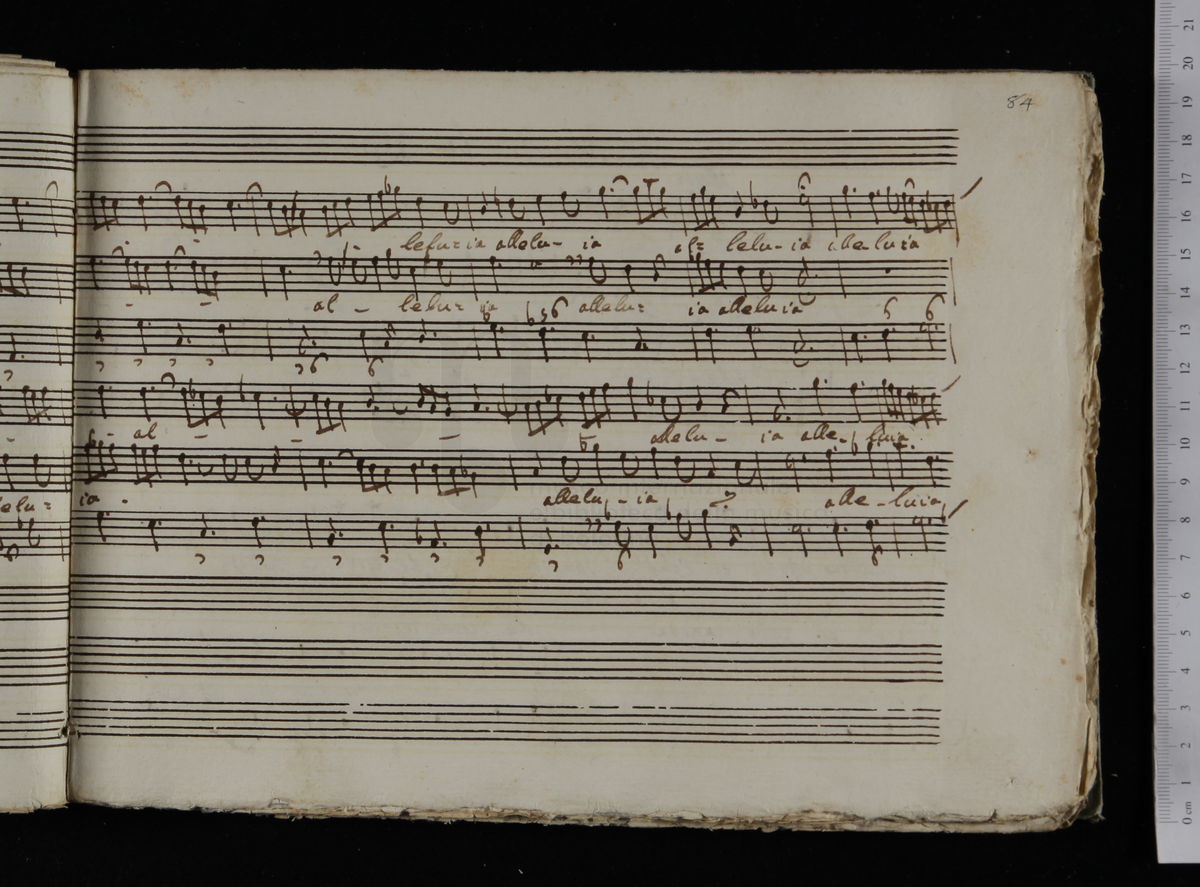 84
lelu= ia allelu- ia al= lelu- ia alleluia
al - lelu= ia allelu= ia alleluia
6 b56 6 6
6 6
al - - - - allelu- ia alle- luia
elu= ia - allelu- ia alle-luia
6 6
21
20
19
18
17
16
15
14
13
12
11
10
9
8
7
6
5
4
3
2
1
0 cm